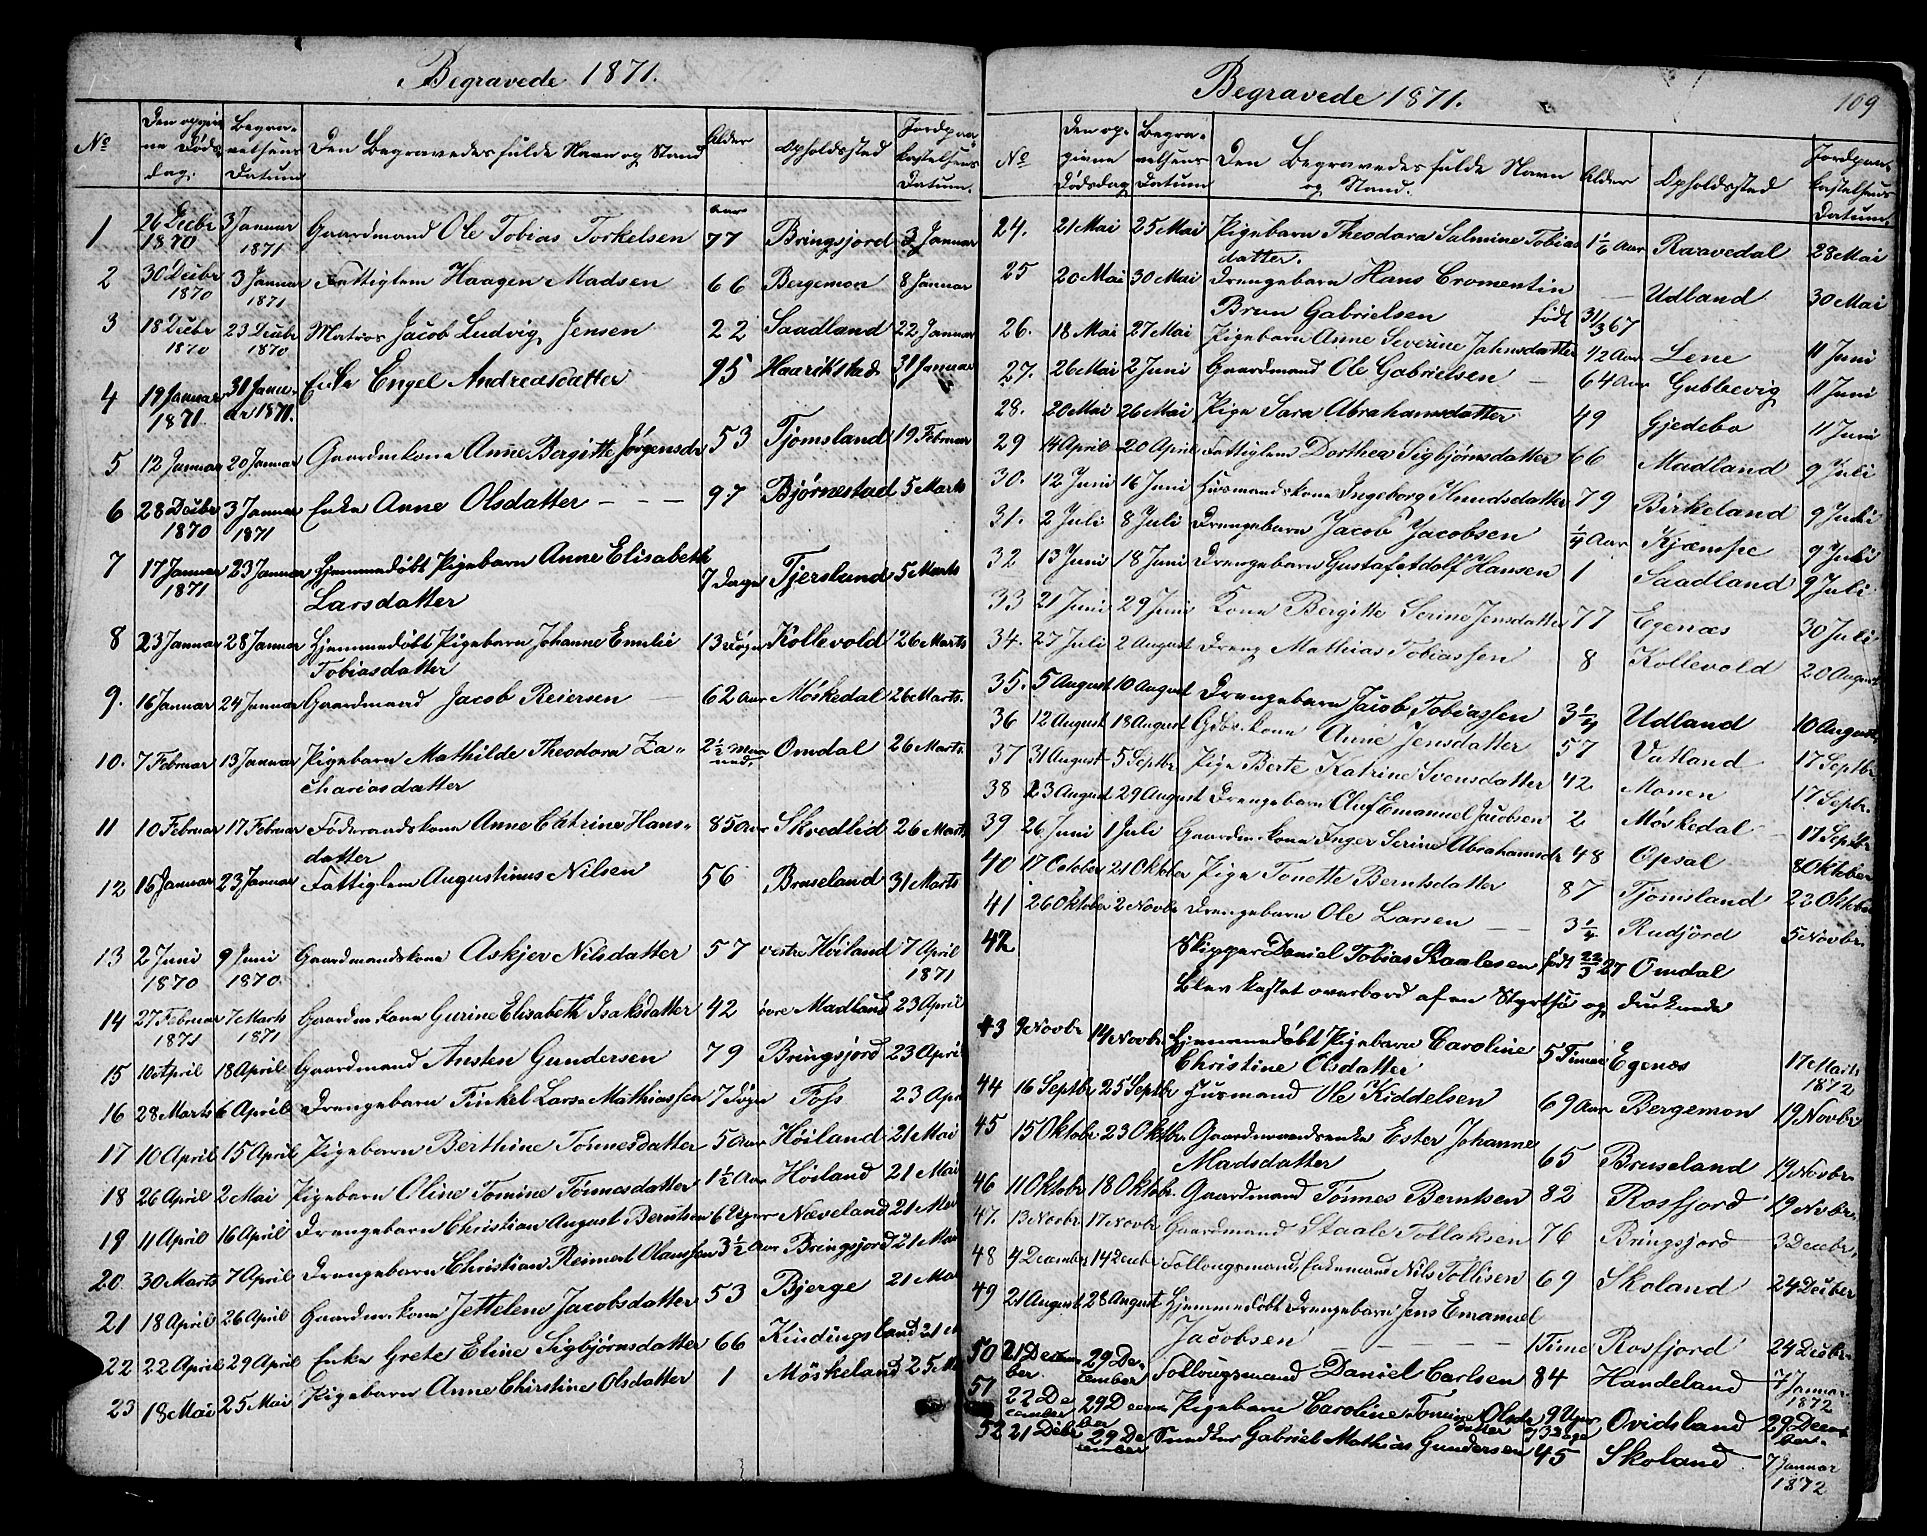 Begravede 1871.
No Den opgivne Dødsdag. Begravelsens Datum Den Begravedes fulde Navn og Stand Alder Opholdssted Jordpaakastelsens Datum.
1 26 Decbr 1870 3 Januar 1871 Gaardmand Ole Tobias Torkelsen Aar 77 Bringsjord 3 Januar
2 30 Decbr 1870 3 Januar 1871 Fattiglem Haagen Madsen 66 Bergemon 8 Januar
3 18 Decbr 1870 23 Decbr 1870 Matros Jacob Ludvig Jensen 22 Saadland 22 Januar
4 19 Januar 1871. 31 Januar 1871. Enke Engel Andreasdatter 95 Haarikstad 31 Januar
5 12 Januar 20 Januar Gaardmkone Anne Bergitte Jørgensdr 53 Tjomsland 19 Februar
6 28 Decbr 1870 3 Januar 1871 Enke Anne Olsdatter - - - 97 Bjørnestad 5 Marts
7 17 Januar 1871 23 Januar Hjemmedøbt Pigebarn Anne Elisabeth
Larsdatter 7 Dage Tjersland 5 Marts
8 23 Januar 28 Januar Hjemmedøbt Pigebarn Johanne Emilie
Tobiasdatter 13 Døgn Kollevold 26 Marts
9. 16 Januar 24 Januar Gaardmand Jacob Reiersen 62 Aar Møskedal 26 Marts.
10. 7 Februar 13 Januar Pigebarn Mathilde Theodora Za-
chariasdatter 2½ Maaned. Omdal 26 Marts
11 10 Februar 17 Februar Føderaadskone Anne Catrine Hans-
datter 85 Aar Skredlid 26 Marts
12 16 Januar 23 Januar Fattiglem Augustinus Nilsen 56 Bruseland 31 Marts
13 2 Juni 1870 9 Juni 1870. Gaardmandskone Askjer Nilsdatter 57 vestre Høiland 7 April 1871
14 27 Februar 1871 7 Marts 1871 Gaardm. kone Gurine Elisabeth Isaksdatter 42 øvre Madland 23 April
15 10 April 18 April Gaardmand Ansten Gundersen 79 Bringsjord 23 April
16 28 Marts 6 April Drengebarn Tinkel Lars Mathiassen 7 Døgn Foss 23 Apr
17 10 April 15 April Pigebarn Berthine Tønnesdatter 5 Aar Høiland 21 Mai
18 26 April 2 Mai Pigebarn Oline Tomine Tønnesdatter 1½ Aar Høiland 21 Mai
19 11 April 16 April Drengebarn Christian August Berntsen 6 Uger Næveland 21 Mai
20 30 Marts 7 April Drengebarn Christian Reinert Olaussen 3½ Aar Bringsjord 21 Mai
21 18 April 26 April Gaardm. kone Jettelene Jacobsdatter 53 Bjerge 21 Mai
22 22 April 29 April Enke Grete Eline Sigbjørnsdatter 66 Kindingsland 21 M
23 18 Mai 25 Mai Pigebarn Anne Christine Olsdatter 1 Møskeland 25 M
Begravede 1871.
109
No Den opgivne Dødsdag Begravelsens Datum Den Begravedes fulde Navn og Stand. Alder Opholdssted Jordpaakastelsens Datum.
24. 21 Mai 25 Mai Pigebarn Theodora Salmine Tobias
datter. 1 1/6 Aar Raavedal 28 Mai
25 20 Mai 30 Mai Drengebarn Hans Cromentin
Brun Gabrielsen født 31/3 67 Udland 30 Mai
26. 18 Mai 27 Mai Pigebarn Anne Severine Jahnsdatter ½ Aar Lene 11 Juni
27. 26 Mai 2 Juni Gaardmand Ole Gabrielsen - 64 Aar Gubbevig 11 Juni
28. 20 Mai 26 Mai Pige Sara Abrahamsdatter 49 Gjedebo 11 Juni
29 14 April 20 April Fattiglem Dorthea Sigbjørnsdatter 66 Madland 9 Juli
30. 12 Juni 16 Juni Husmandskone Ingeborg Knudsdatter 79 Birkeland 9 Juli
31. 2 Juli 8 Juli Drengebarn Jacob Jacobsen ¼ Aar Kjæmpe 9 Juli
32 13 Juni 18 Juni Drengebarn Gustaf Adolf Hansen 1 Saadland 9 Juli
33 21 Juni 29 Juni Kone Bergitte Serine Jensdatter 77 Egenæs 30 Juli
34. 27 Juli 2 August Dreng Mathias Tobiassen 8 Kollevold 20 August
35. 5 August 10 August Drengebarn Jacob Tobiassen 3¼ Udland 10 August
36 12 August 18 August Gbr. kone Anne Jensdatter 57 Vatland 17 Septbr
37 31 August 5 Septbr Pige Berte Katrine Svensdatter 42 Monen 17 Septbr
38 23 August 29 August Drengebarn Oluf Emanuel Jacobsen 2 Møskedal 17 Septbr
39 26 Juni 1 Juli Gaardm. kone Inger Serine Abrahamsdr 48 Opsal 8 Oktober
40 17 October 21 Oktober Pige Tonette Berntsdatter 87 Tjomsland 22 Oktober
41 26 Oktober 2 Novbr Drengebarn Ole Larsen - - 3¼ Rudjord 5 Novbr.
42 Skipper Daniel Tobias Staalesen født 22/3 27 Omdal
blev kastet overbord af en Styrtsø og druknede
43 9 Novbr 14 Novbr Hjemmedøbt Pigebarn Caroline
Christine Olsdatter 5 Timer Egenæs 17 Marts 1872
44 16 Septbr 25 Septbr Husmand Ole Kiddelsen 69 Aar Bergemon 19 Novbr
45 15 Oktobr 23 Oktbr Gaardmandsenke Ester Johanne
Madsdatter 65 Bruseland 19 Novbr
46 11 Oktobr 18 Oktobr. Gaardmand Tønnes Berntsen 82 Rosfjord 19 Novbr.
47. 13 Novbr. 17 Novbr Gaardmand Staale Tollaksen 76 Bringsjord 3 Decbr.
48 9 December 14 Decbr Follougsmand, Enkemand Nils Tollisen 69 Skoland 24 Decbr
49 21 August 28 August Hjemmedøbt Drengebarn Jens Emanuel
Jacobsen - - - 1 Time Rosfjord 24 Decbr.
50 21 December 29 December Follougsmand Daniel Carlsen 84 Handeland 7 Januar 1872
51 22 December 29 December Pigebarn Caroline Tomine Olsdatter 9 Uger og 3 Dage Ovidsland 29 December.
52 21 Decbr 29 December Snedker Gabriel Mathias Gundersen 45 Skoland 7 Januar 1872